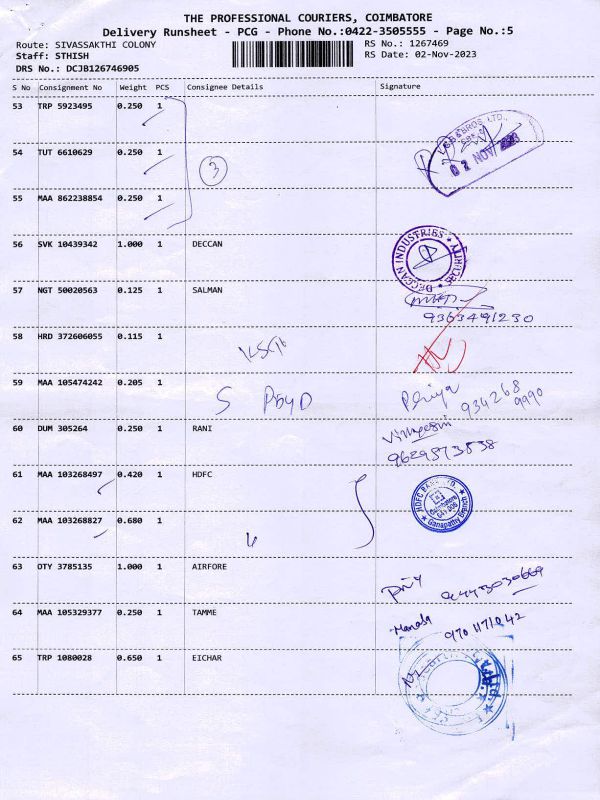 THE PROFESSIONAL COURIERS, COIMBATORE
Delivery Runsheet - PCG - Phone No.:0422-3505555 - Page No.:5
Route: SIVASSAKTHI COLONY RS No.: 1267469
Staff: STHISH RS Date: 02-Nov-2023
DRS No.: DCJB126746905
S No Consignment No Weight PCS Consignee Details Signature
53 TRP 5923495 0.250 1
54 TUT 6610629 0.250 1
02 NOV 2023
3
55 MAA 862238854 0.250 1
56 SVK 10439342 1.000 1 DECCAN
DECCAN INDUSTRIES SECURITY
57 NGT 50020563 0.125 1 SALMAN
9363491230
58 HRD 372606055 0.115 1
59 MAA 105474242 0.205 1
S
Priya 934268
9990
60 DUM 305264 0.250 1 RANI
9629573538
61 MAA 103268497 0.420 1 HDFC
HDFC BANK LTD. Coimbatore 641 006 Ganapathy Branch
62 MAA 103268827 0.680 1
63 OTY 3785135 1.000 1 AIRFORE
64 MAA 105329377 0.250 1 TAMME
65 TRP 1080028 0.650 1 EICHAR